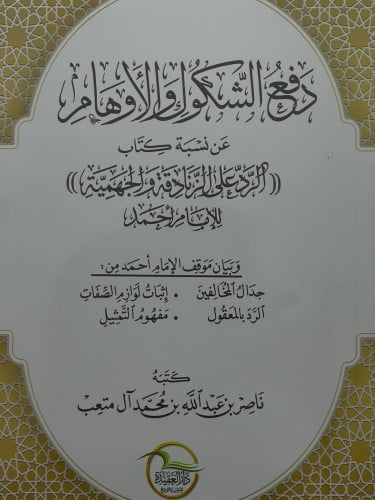 دَفْعُ الشُّكُوكِ وَالأَوْهَامِ
عَنْ نِسْبَةِ كِتَابِ
((الرَّدِّ عَلَى الزَّنَادِقَةِ وَالجَهْمِيَّةِ))
لِلإِمَامِ أَحْمَد
وَبَيَان مَوقِفِ الإِمَامِ أَحمَد مِن:
جِدَالُ المُخَالِفِينَ • إِثبَاتُ لَوَازِمِ الصِّفَاتِ
الرَّد بِالمَعْقُولِ • مَفهُومُ التَّمْثِيلِ
كَتَبَهُ
نَاصِر بن عَبدِ اللَّه بن مُحَمَّد آل متعِب
دَارُ العَقِيدَة